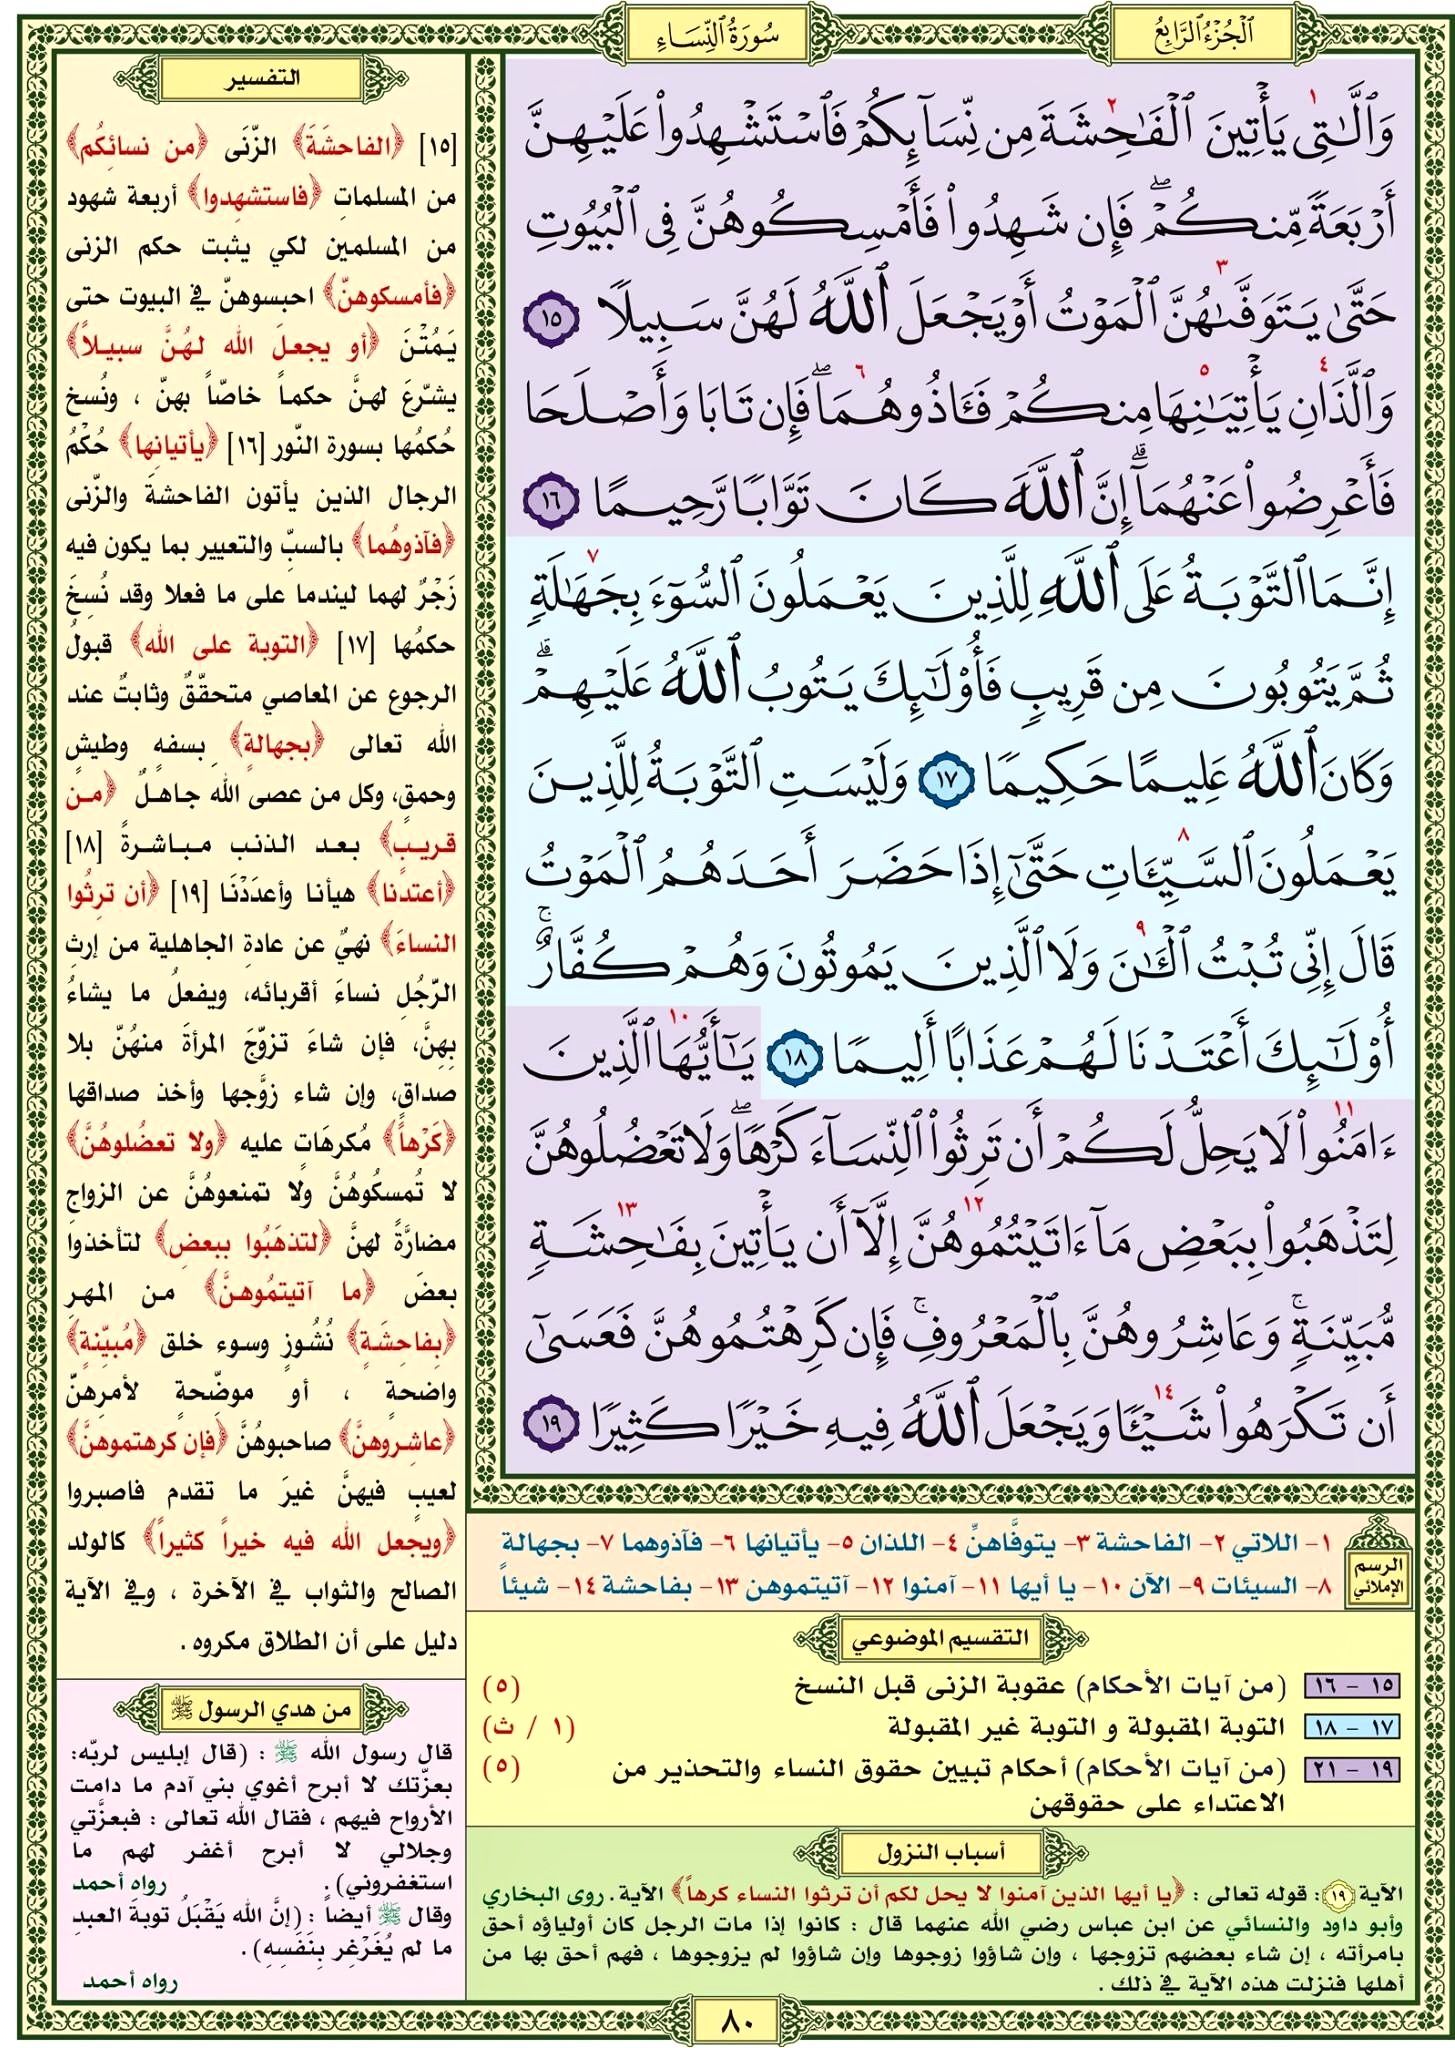 الجزء الرابع
سورة النساء
وَٱلَّٰتِى يَأْتِينَ ٱلْفَٰحِشَةَ مِن نِّسَآئِكُمْ فَٱسْتَشْهِدُوا۟ عَلَيْهِنَّ
أَرْبَعَةً مِّنكُمْ ۖ فَإِن شَهِدُوا۟ فَأَمْسِكُوهُنَّ فِى ٱلْبُيُوتِ
حَتَّىٰ يَتَوَفَّىٰهُنَّ ٱلْمَوْتُ أَوْ يَجْعَلَ ٱللَّهُ لَهُنَّ سَبِيلًا ١٥
وَٱلَّذَانِ يَأْتِيَٰنِهَا مِنكُمْ فَـَٔاذُوهُمَا ۖ فَإِن تَابَا وَأَصْلَحَا
فَأَعْرِضُوا۟ عَنْهُمَآ ۗ إِنَّ ٱللَّهَ كَانَ تَوَّابًا رَّحِيمًا ١٦
إِنَّمَا ٱلتَّوْبَةُ عَلَى ٱللَّهِ لِلَّذِينَ يَعْمَلُونَ ٱلسُّوٓءَ بِجَهَٰلَةٍ
ثُمَّ يَتُوبُونَ مِن قَرِيبٍ فَأُو۟لَٰٓئِكَ يَتُوبُ ٱللَّهُ عَلَيْهِمْ ۗ
وَكَانَ ٱللَّهُ عَلِيمًا حَكِيمًا ١٧ وَلَيْسَتِ ٱلتَّوْبَةُ لِلَّذِينَ
يَعْمَلُونَ ٱلسَّيِّـَٔاتِ حَتَّىٰٓ إِذَا حَضَرَ أَحَدَهُمُ ٱلْمَوْتُ
قَالَ إِنِّى تُبْتُ ٱلْـَٰٔنَ وَلَا ٱلَّذِينَ يَمُوتُونَ وَهُمْ كُفَّارٌ ۚ
أُو۟لَٰٓئِكَ أَعْتَدْنَا لَهُمْ عَذَابًا أَلِيمًا ١٨ يَٰٓأَيُّهَا ٱلَّذِينَ
ءَامَنُوا۟ لَا يَحِلُّ لَكُمْ أَن تَرِثُوا۟ ٱلنِّسَآءَ كَرْهًا ۖ وَلَا تَعْضُلُوهُنَّ
لِتَذْهَبُوا۟ بِبَعْضِ مَآ ءَاتَيْتُمُوهُنَّ إِلَّآ أَن يَأْتِينَ بِفَٰحِشَةٍ
مُّبَيِّنَةٍ ۚ وَعَاشِرُوهُنَّ بِٱلْمَعْرُوفِ ۚ فَإِن كَرِهْتُمُوهُنَّ فَعَسَىٰٓ
أَن تَكْرَهُوا۟ شَيْـًٔا وَيَجْعَلَ ٱللَّهُ فِيهِ خَيْرًا كَثِيرًا ١٩
الرسم الإملائي
١- اللاتي ٢- الفاحشة ٣- يتوفَّاهنّ ٤- اللذان ٥- يأتيانها ٦- فآذوهما ٧- بجهالة
٨- السيئات ٩- الآن ١٠- يا أيها ١١- آمنوا ١٢- آتيتموهن ١٣- بفاحشة ١٤- شيئاً
التقسيم الموضوعي
١٥ – ١٦ (من آيات الأحكام) عقوبة الزنى قبل النسخ (٥)
١٧ – ١٨ التوبة المقبولة و التوبة غير المقبولة (١ / ث)
١٩ – ٢١ (من آيات الأحكام) أحكام تبيين حقوق النساء والتحذير من (٥)
الاعتداء على حقوقهن
أسباب النزول
الآية ١٩ : قوله تعالى : ﴿يا أيها الذين آمنوا لا يحل لكم أن ترثوا النساء كرهاً﴾ الآية. روى البخاري
وأبو داود والنسائي عن ابن عباس رضي الله عنهما قال : كانوا إذا مات الرجل كان أولياؤه أحق
بامرأته ، إن شاء بعضهم تزوجها ، وإن شاؤوا زوجوها وإن شاؤوا لم يزوجوها ، فهم أحق بها من
أهلها فنزلت هذه الآية في ذلك .
التفسير
[١٥] ﴿الفاحشَةَ﴾ الزّنَى ﴿من نسائِكُم﴾
من المسلماتِ ﴿فاستشهِدوا﴾ أربعة شهود
من المسلمين لكي يثبت حكم الزنى
﴿فأمسكوهنّ﴾ احبسوهنّ في البيوت حتى
يَمُتْنَ ﴿أو يجعلَ الله لهُنَّ سبيلاً﴾
يشرّعَ لهنَّ حكماً خاصّاً بهنّ ، ونُسخ
حُكمُها بسورة النّور [١٦] ﴿يأتيانِها﴾ حُكْمُ
الرجال الذين يأتون الفاحشةَ والزّنى
﴿فآذوهُما﴾ بالسبِّ والتعيير بما يكون فيه
زَجْرٌ لهما ليندما على ما فعلا وقد نُسِخَ
حكمُها [١٧] ﴿التوبة على الله﴾ قبولُ
الرجوع عن المعاصي متحقّقٌ وثابتٌ عند
الله تعالى ﴿بجهالةٍ﴾ بِسفهٍ وطيشٍ
وحمقٍ، وكل من عصى الله جاهلٌ ﴿من
قريبٍ﴾ بعد الذنب مباشرةً [١٨]
﴿أعتدنا﴾ هيأنا وأعدَدْنَا [١٩] ﴿أن ترِثُوا
النساءَ﴾ نهيٌ عن عادةِ الجاهلية من إرثِ
الرّجُلِ نساءَ أقربائه، ويفعلُ ما يشاءُ
بِهِنَّ، فإن شاءَ تزوّجَ المرأةَ منهُنّ بلا
صداقٍ، وإن شاء زوَّجها وأخذ صداقها
﴿كَرْهاً﴾ مُكرهَاتٍ عليه ﴿ولا تعضُلوهُنَّ﴾
لا تُمسكُوهُنَّ ولا تمنعوهُنَّ عن الزواجِ
مضارَّةً لهنَّ ﴿لتذهَبُوا ببعضِ﴾ لتأخذوا
بعضَ ﴿ما آتيتمُوهنَّ﴾ من المهرِ
﴿بِفاحِشَةٍ﴾ نُشُوزٍ وسوء خلق ﴿مُبيّنةٍ﴾
واضحةٍ ، أو موضّحةٍ لأمرِهنّ
﴿عاشِروهنَّ﴾ صاحبوهُنَّ ﴿فإن كرهتموهنّ﴾
لعيبٍ فيهنَّ غيرَ ما تقدم فاصبروا
﴿ويجعل الله فيه خيراً كثيراً﴾ كالولد
الصالح والثواب في الآخرة ، وفي الآية
دليل على أن الطلاق مكروه .
من هدي الرسول ﷺ
قال رسول الله ﷺ : (قال إبليس لربّه:
بعزّتك لا أبرح أغوي بني آدم ما دامت
الأرواح فيهم ، فقال الله تعالى : فبعزَّتي
وجلالي لا أبرح أغفر لهم ما
استغفروني). رواه أحمد
وقال ﷺ أيضاً : (إنَّ الله يَقْبَلُ توبةَ العبدِ
ما لم يُغَرْغِر بِنَفَسِهِ) .
رواه أحمد
٨٠